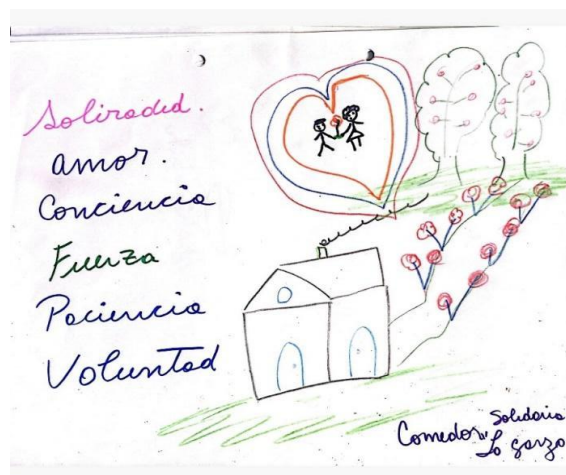 Soliraded.
amor.
Conciencia
Fuerza
Paciencia
Voluntad
Solidario
Comedor "La garza